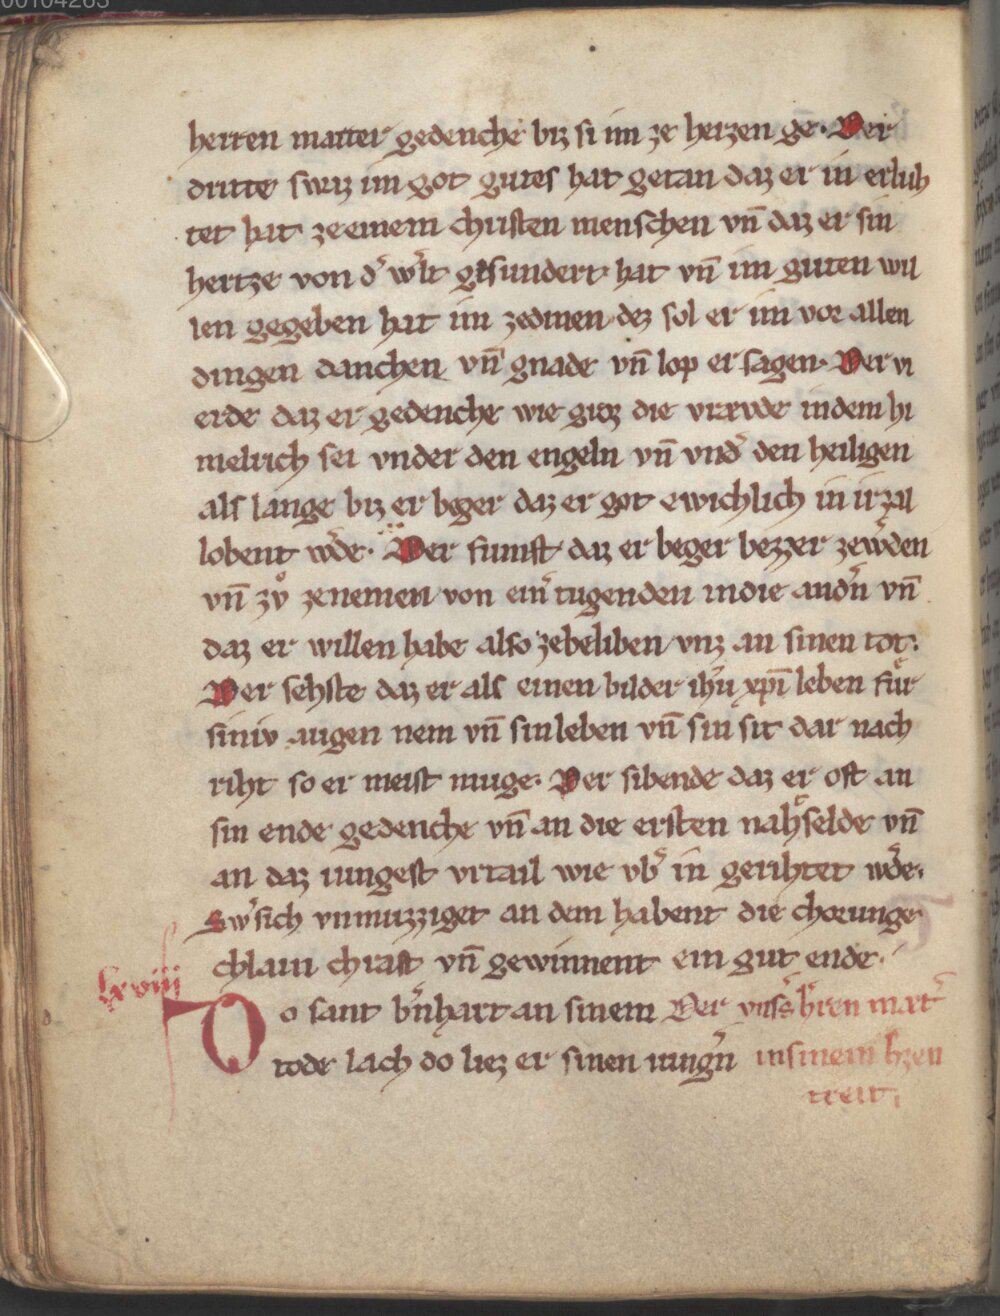 00104263
herren matter gedenche biz si im ze herzen ge. Der
dritte swaz im got gutes hat getan daz er in erluh
tet hat ze einem christen menschen vn̄ daz er sin
hertze von d͛ w͛lt gesundert hat vn̄ im guten wil
len gegeben hat im zedinen. dez sol er im vor allen
dingen danchen vn̄ gnade vn̄ lop er sagen. Der vi
erde daz er gedenche wie groz die vræude indem hi
melrich sei vnder den engeln vn̄ vnd͛ den heiligen
als lange biz er beger daz er got ewichlich in ir zal
lobent w͛de. Der fumft daz er beger bezzer zew͛den
vn̄ zvͦ zenemen von ein͛ tugenden indie and͛n vn̄
daz er willen habe also zebeliben vnz an sinen tot.
Der sehste daz er als einen bilder ih̄u xp̄i leben fuͤr
siniv augen nem vn̄ sinleben vn̄ sin sit dar nach
riht so er meist muge. Der sibende daz er oft an
sin ende gedenche vn̄ an die ersten nahselde vn̄
an daz iungest vrtail wie vb͛ in gerihtet w͛de.
Sw͛ sich vnmuzziget an dem habent die chorunge
chlain chraft vn̄ gewinnent ein gut ende.
lxviii
Do sant b͛nhart an sinem Der vns͛s h͛ren mart͛
tode lach do liez er sinen iung͛n insinem h͛zen
treit